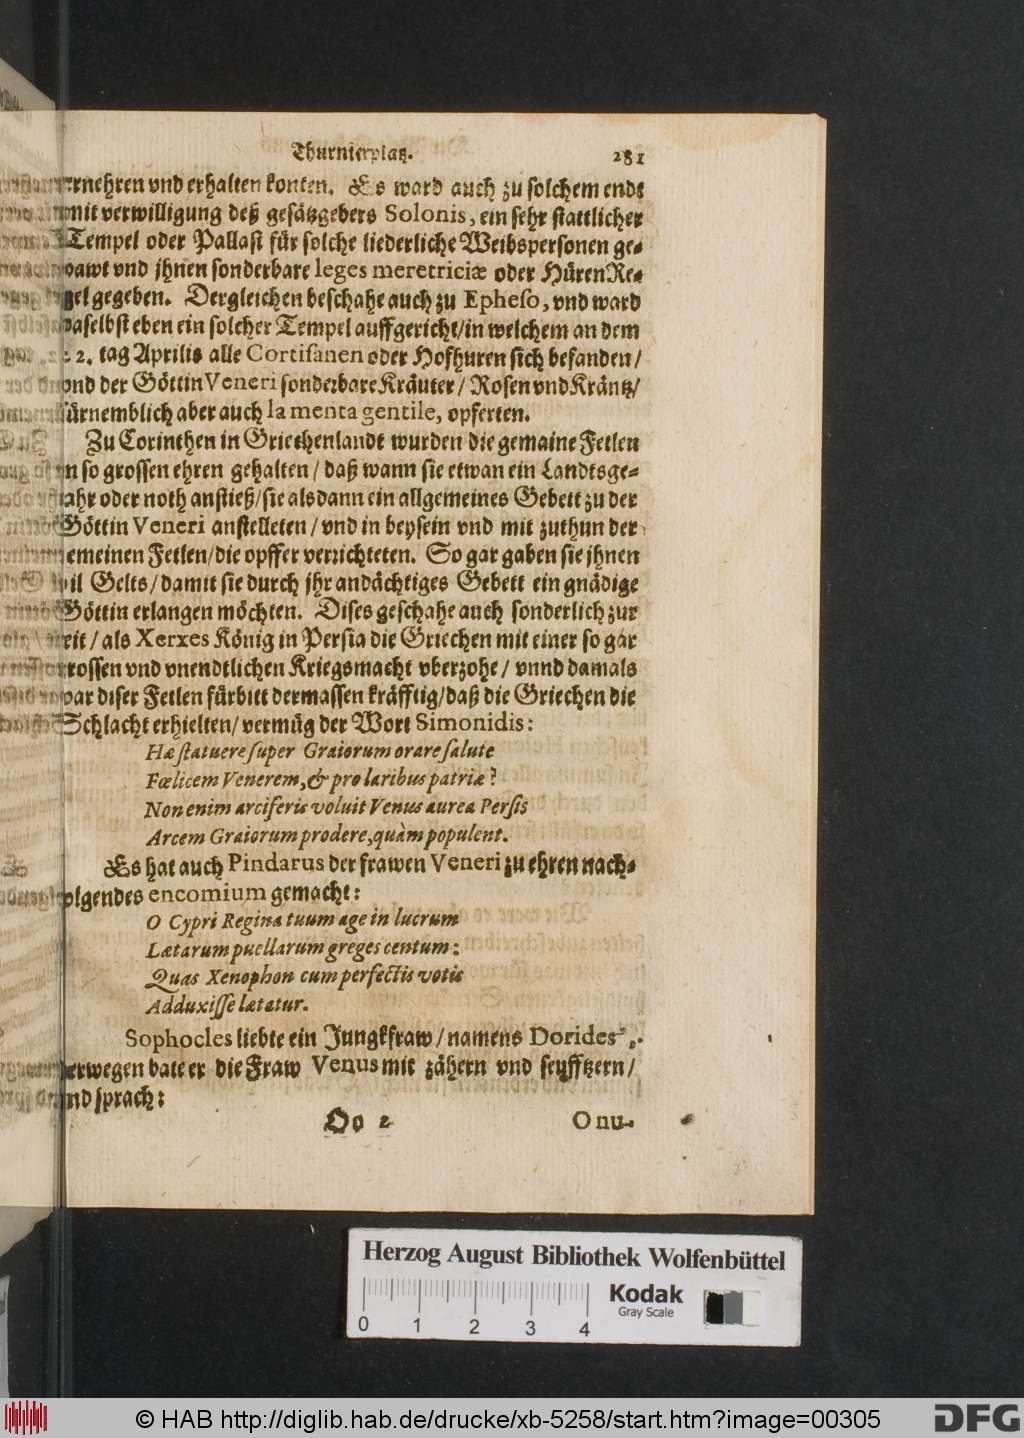 Thurnierplatz. 281
ernehren vnd erhalten konten. Es ward auch zu solchem ende
mit verwilligung deß gesätzgebers Solonis, ein sehr stattlicher
Tempel oder Pallast für solche liederliche Weibspersonen ge-
bawt vnd jhnen sonderbare leges meretriciæ oder HürenRe-
gel gegeben. Dergleichen beschahe auch zu Epheso, vnd ward
daselbst eben ein solcher Tempel auffgericht/in welchem an dem
22. tag Aprilis alle Cortisanen oder Hofhuren sich befanden/
vnd der Göttin Veneri sonderbare Kräuter/ Rosen vnd Kräntz/
fürnemblich aber auch la menta gentile, opferten.
Zu Corinthen in Griechenlandt wurden die gemaine Fetlen
in so grossen ehren gehalten/ daß wann sie etwan ein Landtsge-
fahr oder noth anstieß/sie alsdann ein allgemeines Gebett zu der
Göttin Veneri anstelleten/ vnd in beysein vnd mit zuthun der
gemeinen Fetlen/die opffer verzichteten. So gar gaben sie jhnen
vil Gelts/damit sie durch jhr andächtiges Gebett ein gnädige
Göttin erlangen möchten. Dises geschahe auch sonderlich zur
zeit/ als Xerxes König in Persia die Griechen mit einer so gar
grossen vnd vnendtlichen Kriegsmacht vberzohe/ vnnd damals
war diser Fetlen fürbitt dermassen kräfftig/daß die Griechen die
Schlacht erhielten/ vermüg der Wort Simonidis:
Hæ statuere super Graiorum orare salute
Fœlicem Venerem, & pro laribus patriæ?
Non enim arciferis voluit Venus aurea Persis
Arcem Graiorum prodere, quàm populent.
Es hat auch Pindarus der frawen Veneri zu ehren nach-
folgendes encomium gemacht:
O Cypri Regina tuum age in lucrum
Lætarum puellarum greges centum:
Quas Xenophon cum perfectis votis
Adduxisse lætatur.
Sophocles liebte ein Jungkfraw/ namens Dorides
derwegen bate er die Fraw Venus mit zähern vnd seufftzern/
vnd sprach:
Oo 2 O nu-
Herzog August Bibliothek Wolfenbüttel
0 1 2 3 4
Kodak
Gray Scale
© HAB http://diglib.hab.de/drucke/xb-5258/start.htm?image=00305
DFG